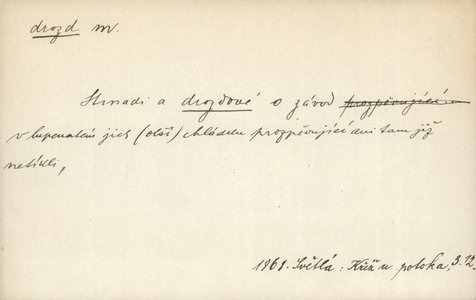 drozd m.
Strnadi a drozdové o závod prozpěvující
v lupenatém jich (olší) chládku prozpěvující ani tam již
nesídli,
1868. Světlá: Kříž u potoka, 3.12.